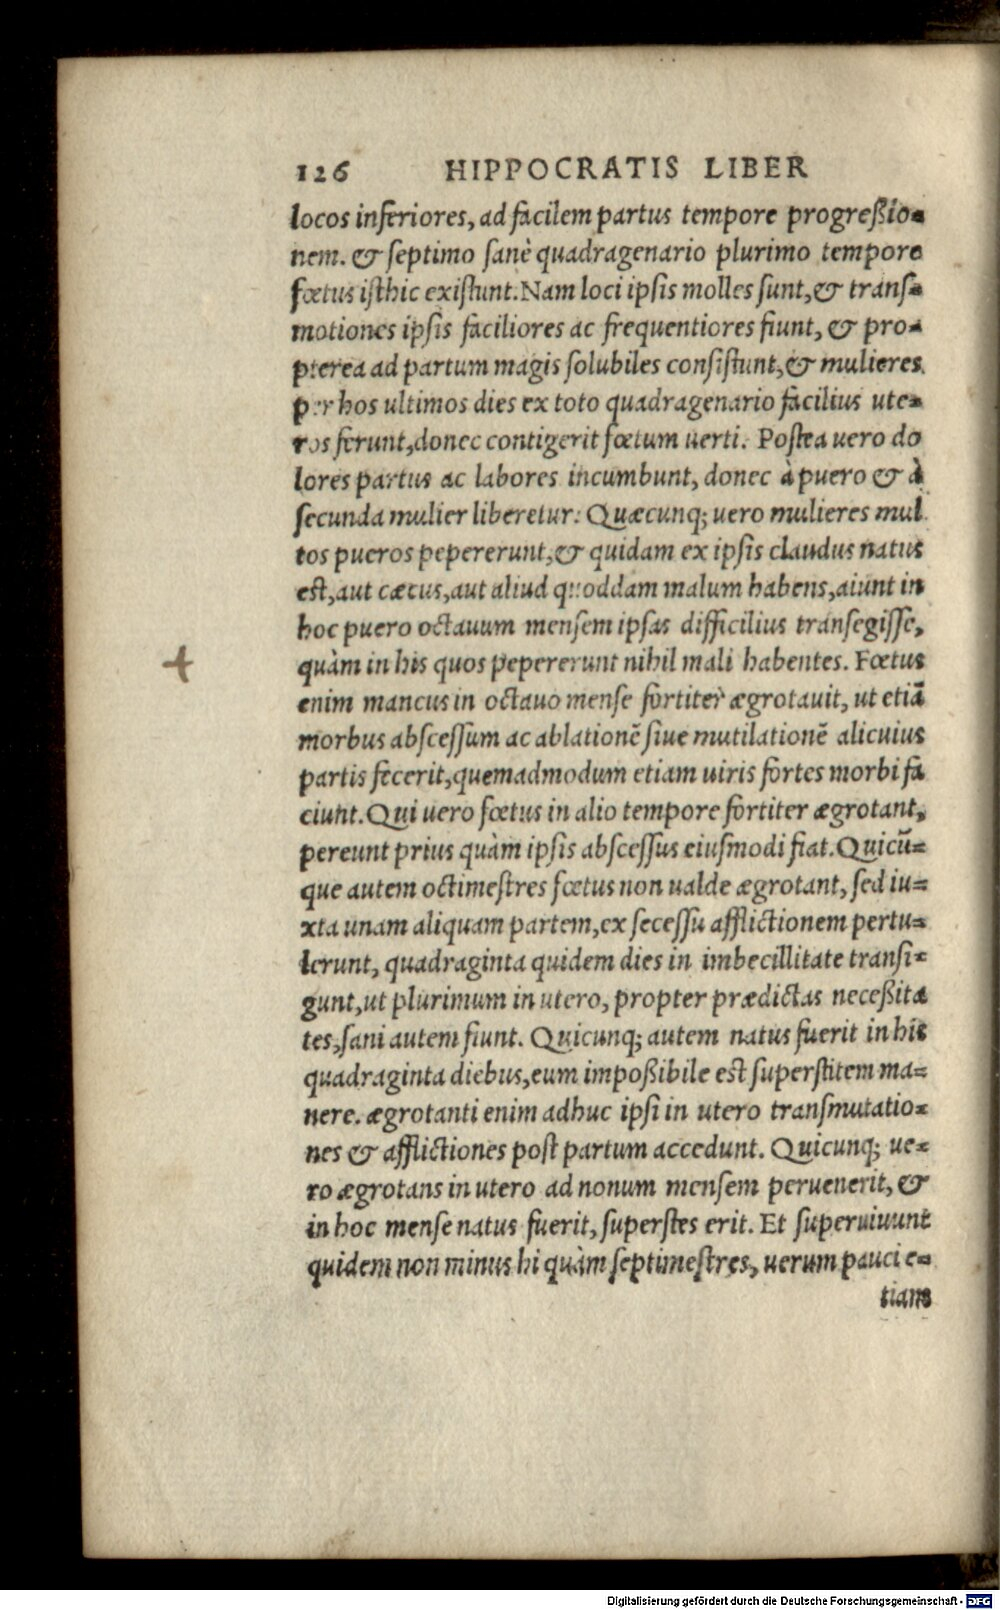 126 HIPPOCRATIS LIBER
locos inferiores, ad facilem partus tempore progreßio=
nem. & septimo sanè quadragenario plurimo tempore
fœtus isthic existunt. Nam loci ipsis molles sunt, & trans=
motiones ipsis faciliores ac frequentiores fiunt, & pro=
pterea ad partum magis solubiles consistunt, & mulieres
per hos ultimos dies ex toto quadragenario facilius ute=
ros ferunt, donec contigerit fœtum uerti. Postea uero do
lores partus ac labores incumbunt, donec à puero & à
secunda mulier liberetur. Quæcunq; uero mulieres mul
tos pueros pepererunt, & quidam ex ipsis claudus natus
est, aut cæcus, aut aliud quoddam malum habens, aiunt in
hoc puero octauum mensem ipsas difficilius transegisse,
quàm in his quos pepererunt nihil mali habentes. Fœtus
enim mancus in octauo mense fortiter ægrotauit, ut etiā
morbus abscessum ac ablationē siue mutilationē alicuius
partis fecerit, quemadmodum etiam uiris fortes morbi fa
ciunt. Qui uero fœtus in alio tempore fortiter ægrotant,
pereunt prius quàm ipsis abscessus eiusmodi fiat. Quicū=
que autem octimestres fœtus non ualde ægrotant, sed iu=
xta unam aliquam partem, ex secessu afflictionem pertu=
lerunt, quadraginta quidem dies in imbecillitate transi=
gunt, ut plurimum in utero, propter prædictas neceßita
tes, sani autem fiunt. Quicunq; autem natus fuerit in his
quadraginta diebus, eum impoßibile est superstitem ma=
nere. ægrotanti enim adhuc ipsi in utero transmutatio=
nes & afflictiones post partum accedunt. Quicunq; ue=
ro ægrotans in utero ad nonum mensem peruenerit, &
in hoc mense natus fuerit, superstes erit. Et superuiuunt
quidem non minus hi quàm septimestres, uerum pauci e=
tiam
Digitalisierung gefördert durch die Deutsche Forschungsgemeinschaft - DFG